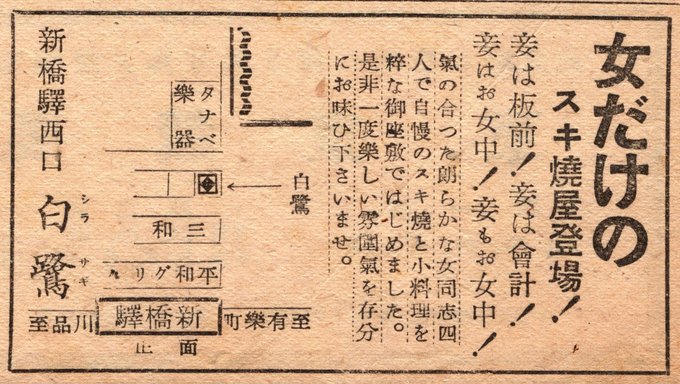 女だけの
スキ燒屋登場!
妾は板前!妾は會計!
妾はお女中!妾もお女中!
氣の合つた朗らかな女同志四
人で自慢のスキ燒と小料理を
粋な御座敷ではじめました。
是非一度樂しい雰圍氣を存分
にお味ひ下さいませ。
白鷺
タナベ
樂器
三和
平和グリル
新橋驛
正面
至有樂町
至品川
新橋驛西口
白鷺
シラサギ